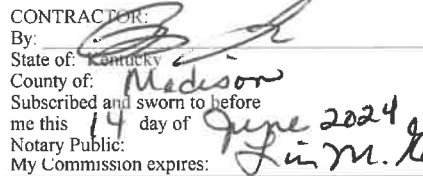 CONTRACTOR:
By:
State of: Kentucky
County of: Madison
Subscribed and sworn to before
me this 14 day of June 2024
Notary Public: Lin M.
My Commission expires: